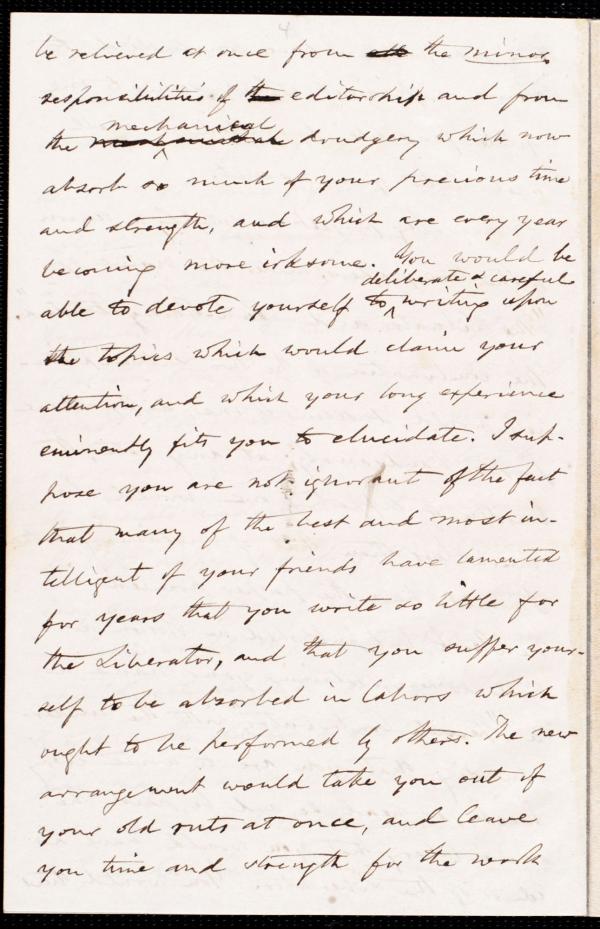 4
be relieved at once from the minor
responsibilities of editorship and from
mechanical
the drudgery which now
absorb so much of your precious time
and strength, and which are every year
becoming more irksome. You would be
deliberate & careful
able to devote yourself to writing upon
the topics which would claim your
attention, and which your long experience
eminently fits you to elucidate. I sup-
pose you are not ignorant of the fact
that many of the best and most in-
telligent of your friends have lamented
for years that you write so little for
the Liberator, and that you suffer your-
self to be absorbed in labors which
ought to be performed by others. The new
arrangement would take you out of
your old ruts at once, and leave
you time and strength for the work